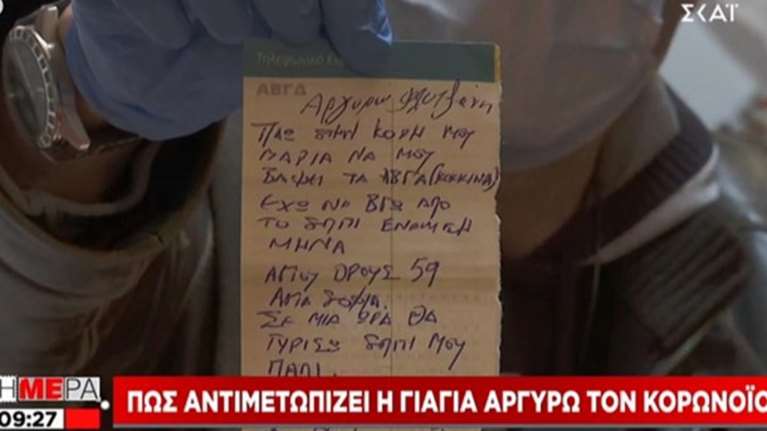 ΣΚΑΪ
Τηλεφωνικό
ΑΒΓΔ
Αργυρώ
ΠΑΩ ΣΤΗΝ ΚΟΡΗ ΜΟΥ
ΜΑΡΙΑ ΝΑ ΜΟΥ
ΒΑΨΕΙ ΤΑ ΑΒΓΑ (ΚΟΚΚΙΝΑ)
ΕΧΩ ΝΑ ΒΓΩ ΑΠΟ
ΤΟ ΣΠΙΤΙ ΕΝΑΜΙΣΗ
ΜΗΝΑ
ΑΓΙΟΥ ΟΡΟΥΣ 59
ΑΓΙΑ ΣΟΦΙΑ.
ΣΕ ΜΙΑ ΩΡΑ ΘΑ
ΓΥΡΙΣΩ ΣΠΙΤΙ ΜΟΥ
ΠΑΛΙ.
ΗΜΕΡΑ
09:27
ΠΩΣ ΑΝΤΙΜΕΤΩΠΙΖΕΙ Η ΓΙΑΓΙΑ ΑΡΓΥΡΩ ΤΟΝ ΚΟΡΩΝΟΪΟ